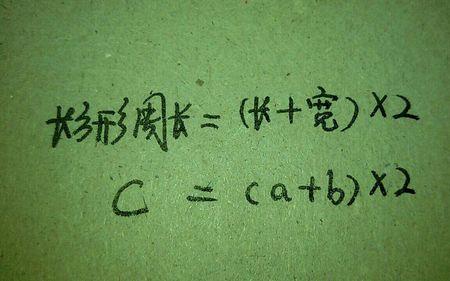 长方形周长=(长+宽)×2
C=(a+b)×2